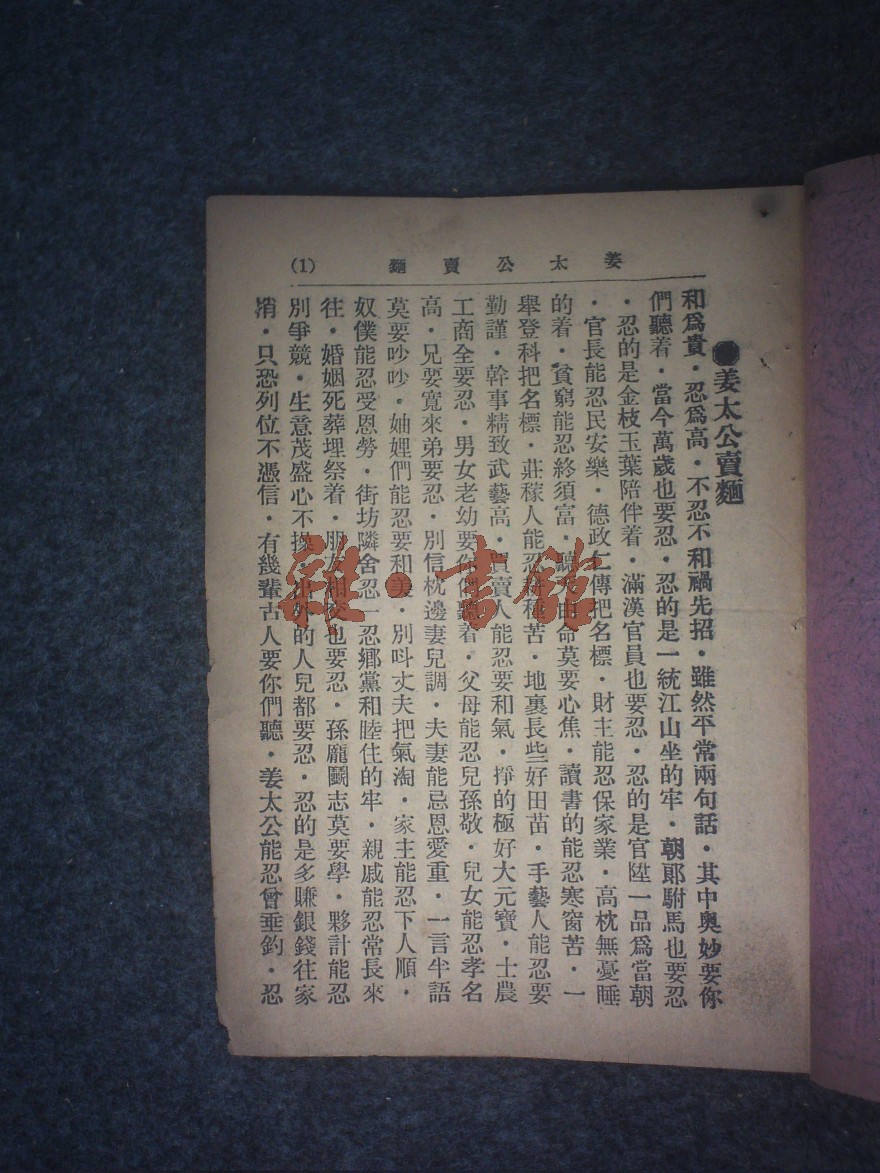 姜太公賣麵 (1)
●姜太公賣麵
和爲貴·忍爲高·不忍不和禍先招·雖然平常兩句話·其中奧妙要你
們聽着·當今萬歲也要忍·忍的是一統江山坐的牢·朝郎駙馬也要忍
·忍的是金枝玉葉陪伴着·滿漢官員也要忍·忍的是官陞一品爲當朝
·官長能忍民安樂·德政仁傳把名標·財主能忍保家業·高枕無憂睡
的着·貧窮能忍終須富·聽天由命莫要心焦·讀書的能忍寒窗苦·一
舉登科把名標·莊稼人能忍耕種苦·地裏長些好田苗·手藝人能忍要
勤謹·幹事精致武藝高·買賣人能忍要和氣·掙的極好大元寶·士農
工商全要忍·男女老幼要你們聽着·父母能忍兒孫敬·兒女能忍孝名
高·兄要寬來弟要忍·別信枕邊妻兒調·夫妻能忌恩愛重·一言半語
莫要吵吵·妯娌們能忍要和美·別呌丈夫把氣淘·家主能忍下人順·
奴僕能忍受恩勞·街坊隣舍忍一忍鄉黨和睦住的牢·親戚能忍常長來
往·婚姻死葬埋祭着·朋友相交也要忍·孫龐鬭志莫要學·夥計能忍
別爭競·生意茂盛心不操·出外的人兒都要忍·忍的是多賺銀錢往家
捎·只恐列位不憑信·有幾輩古人要你們聽·姜太公能忍曾垂釣·忍
雜·書館